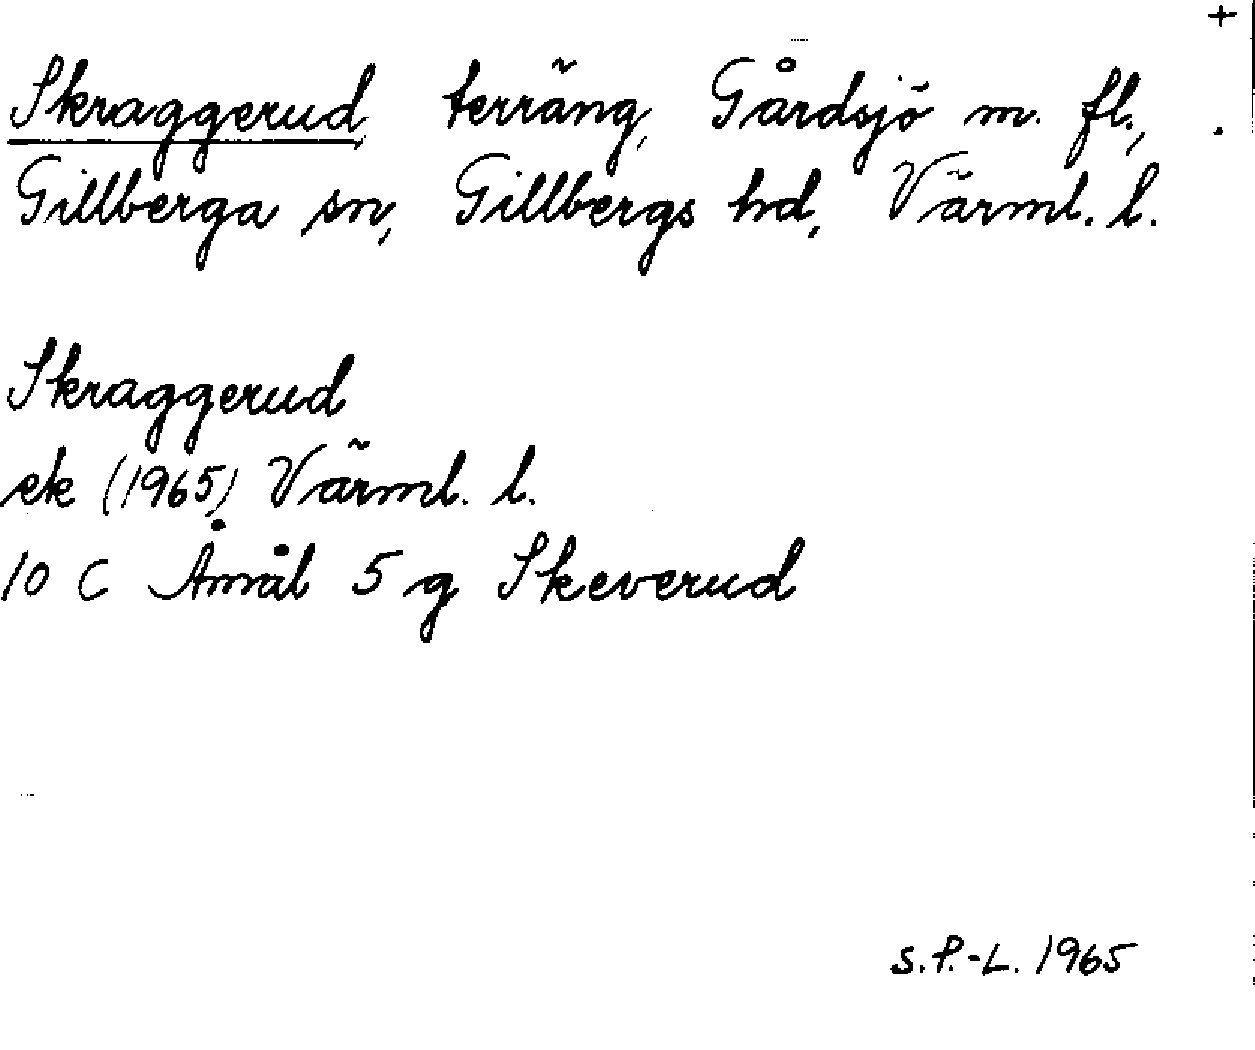 +
Skraggerud, terräng, Gårdsjö m. fl.,
Gillberga sn, Gillbergs hd, Värml. l.
Skraggerud
ek (1965) Värml. l.
10 C Åmål 5 g Skeverud
S.P.-L. 1965